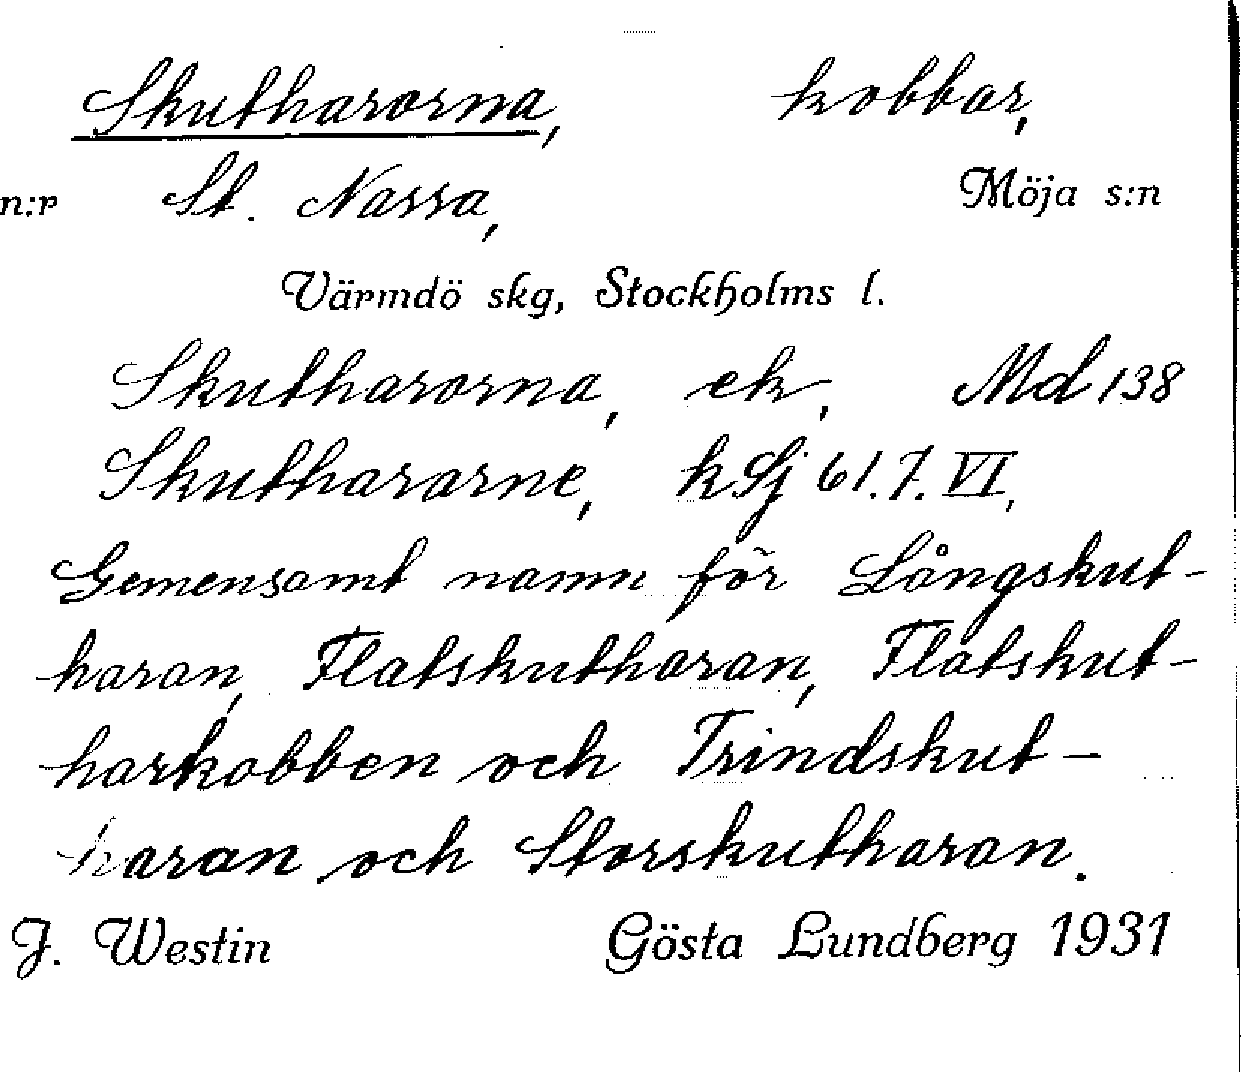 Skutharorna, kobbar,
n:r St. Nassa, Möja s:n
Värmdö skg, Stockholms l.
Skutharorna, ek, Md 138
Skuthararne, kSj 61.7.VI,
Gemensamt namn för Långskut-
haran, Flatskutharan, Flatskut-
harkobben och Trindskut-
haran och Storskutharan.
J. Westin Gösta Lundberg 1931